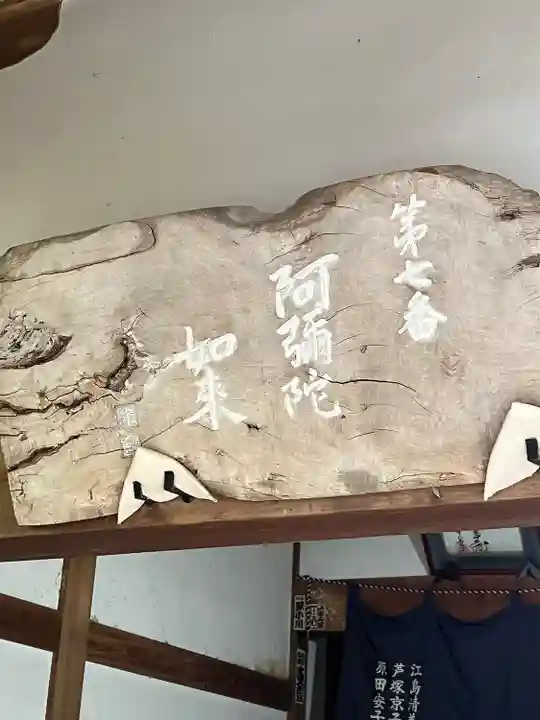 第七番
阿彌陀
如来
江島清
芦塚京子
原田安子